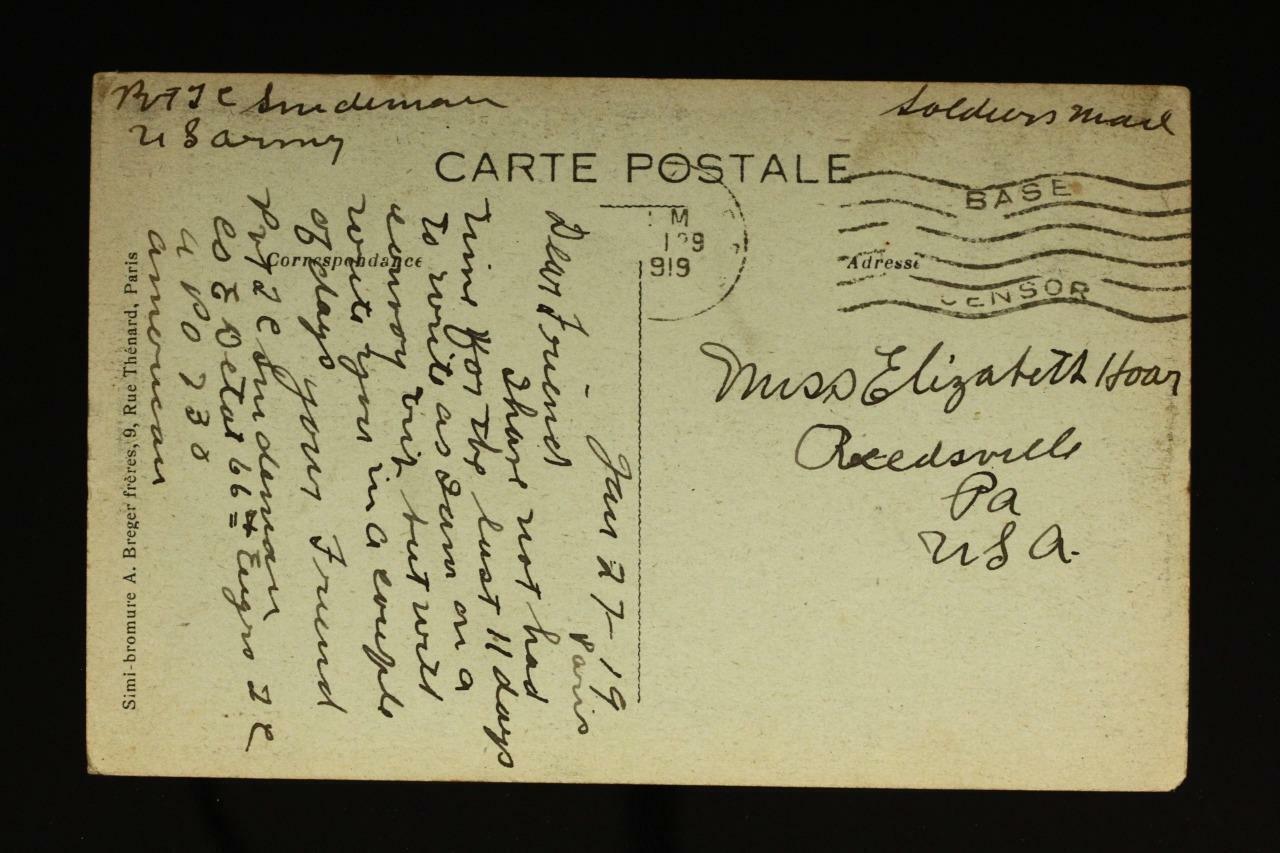 Pvt I C Snideman
U S army
Soldiers Mail
CARTE POSTALE
M
1919
BASE
CENSOR
Correspondance
Adresse
Miss Elizabeth Hoar
Reedsville
Pa
U S A.
Jan 27-19
Paris
Dear Friend -
I have not had
time for the last 11 days
to write as I am on a
convoy trip but will
write you in a couple
of days your Friend
Pvt I C Snideman
Co E Detat 66 = Engrs I C
a P O 730
american
Simi-bromure A. Breger frères, 9, Rue Thénard, Paris